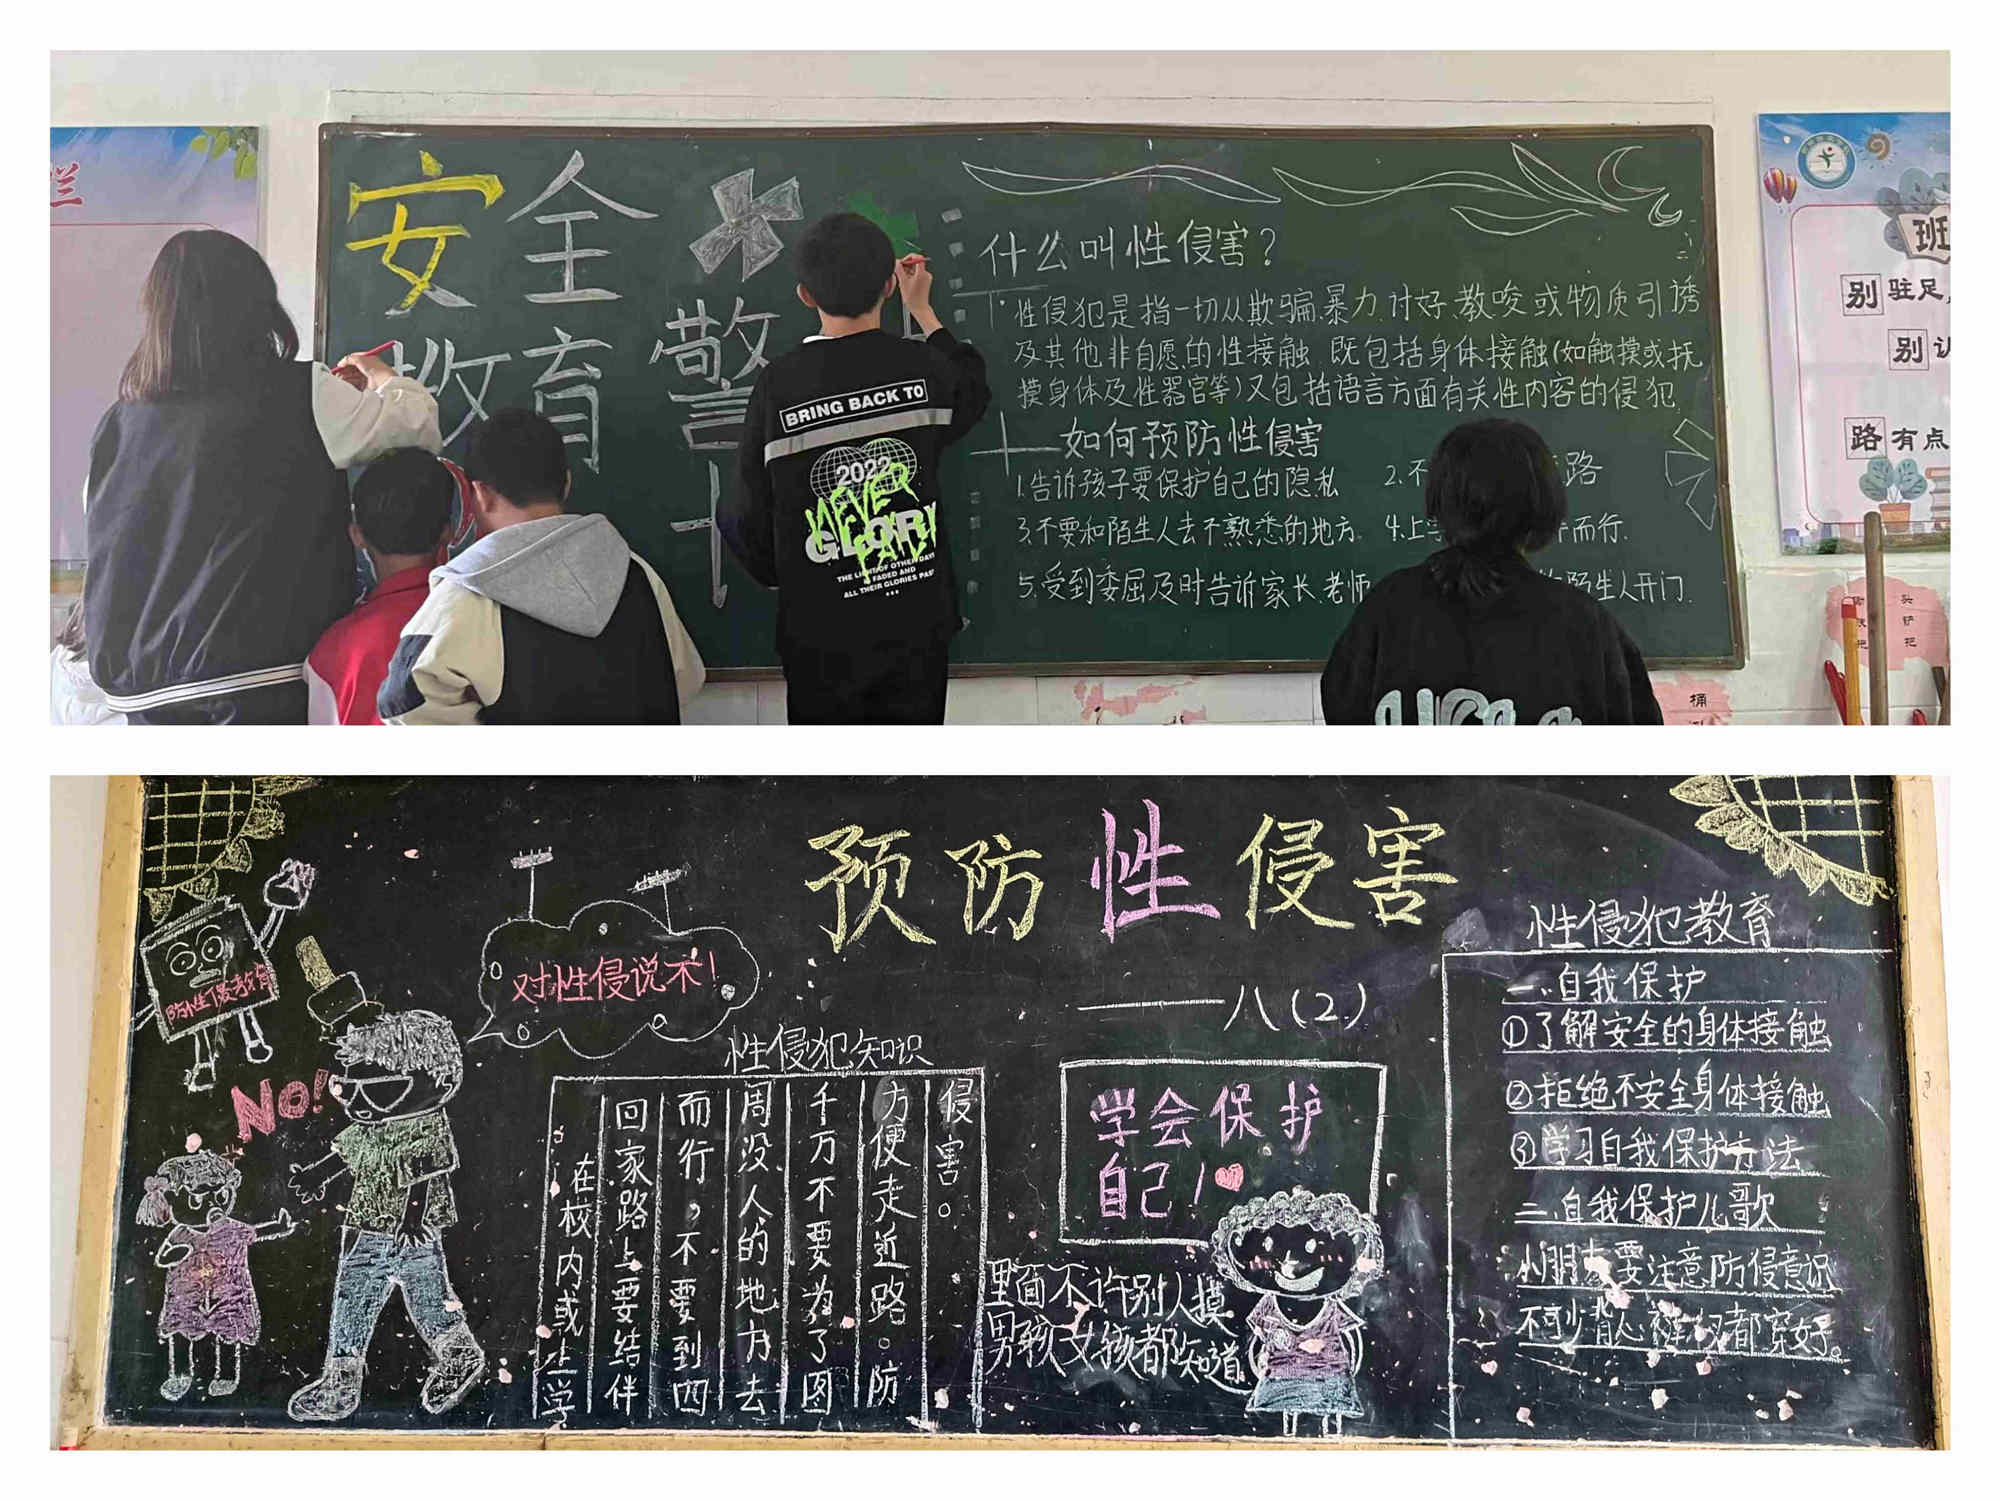 安全
教育
警
什么叫性侵害？
性侵犯是指一切从欺骗、暴力、讨好、教唆或物质引诱
及其他非自愿的性接触，既包括身体接触(如触摸或抚
摸身体及性器官等)又包括语言方面有关性内容的侵犯
——如何预防性侵害
1.告诉孩子要保护自己的隐私
2.不
路
3.不要和陌生人去不熟悉的地方.
4.上
而行.
5.受到委屈及时告诉家长、老师
陌生人开门.
BRING BACK TO
2022
NEVER
GLORY
FADED AND
ALL THEIR GLORIES PAST
栏
班
别驻足
别
路有点
桶
预防性侵害
——八(2)
防性侵教育
NO!
对性侵说不!
性侵犯知识
在校内或上学
回家路上要结伴
而行，不要到四
周没人的地方去
千万不要为了图
方便走近路。防
侵害。
学会保护
自己!
里面不许别人摸
男孩女孩都知道
性侵犯教育
一.自我保护
①了解安全的身体接触
②拒绝不安全身体接触
③学习自我保护方法
二.自我保护儿歌
小朋友要注意防侵意识
不可少背心裤衩都穿好。